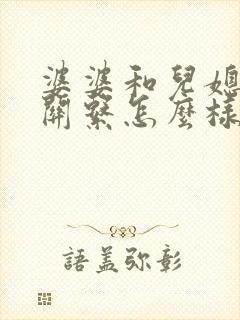 婆婆和兒媳
關繫怎麼樣
語蓋弥彰